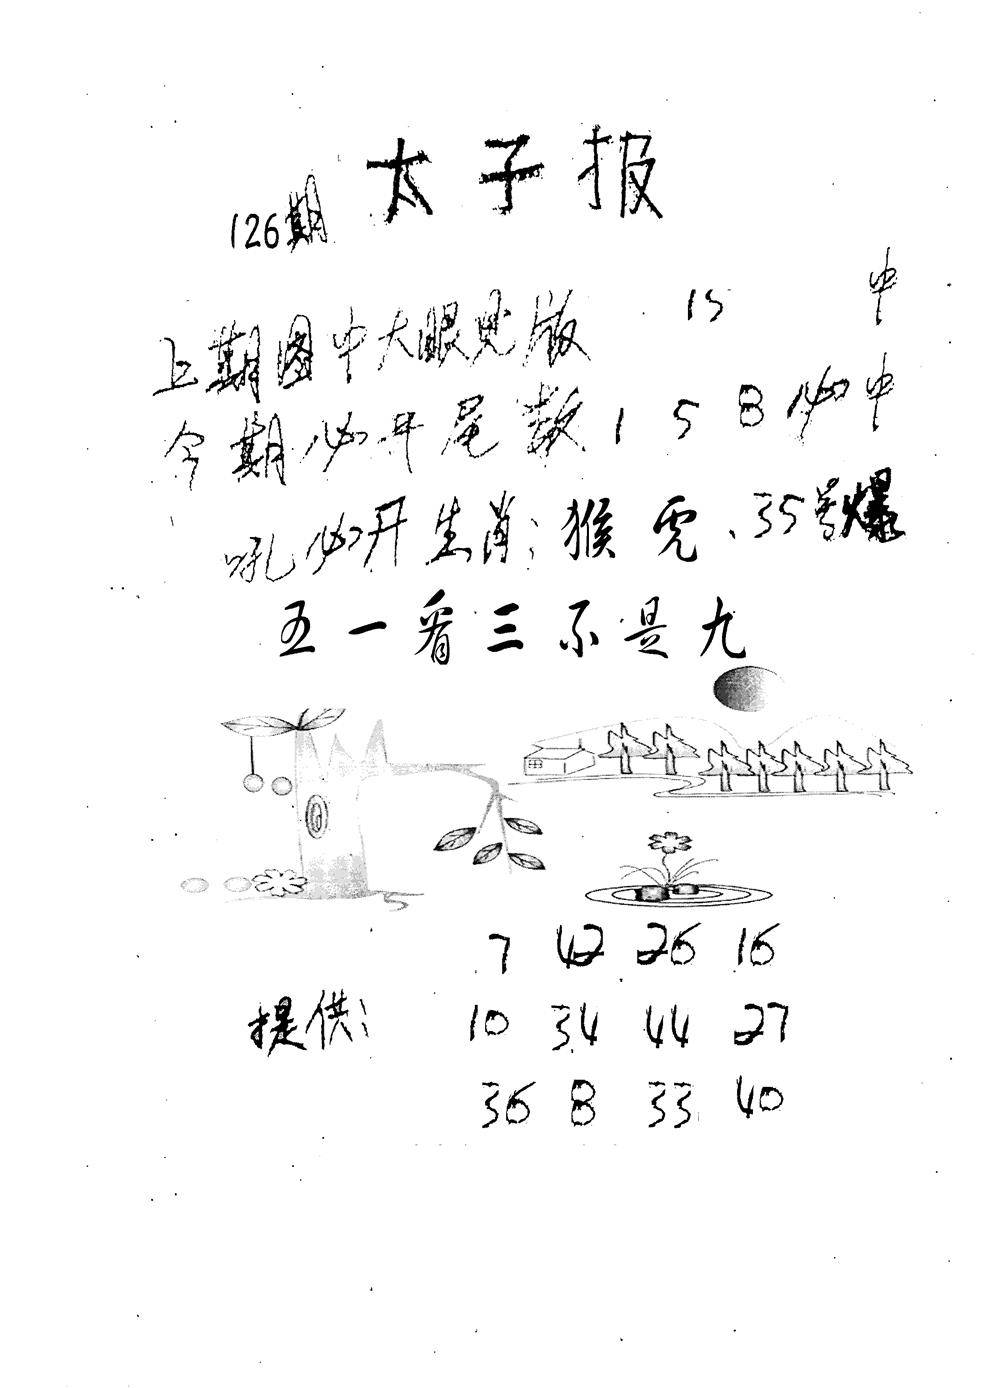 太子报
126期
上期图中大眼见版 15 中
今期必开尾数 1 5 8 必中
吼必开生肖:猴虎、35号爆
五一看三不是九
7 42 26 16
提供: 10 34 44 27
36 8 33 40